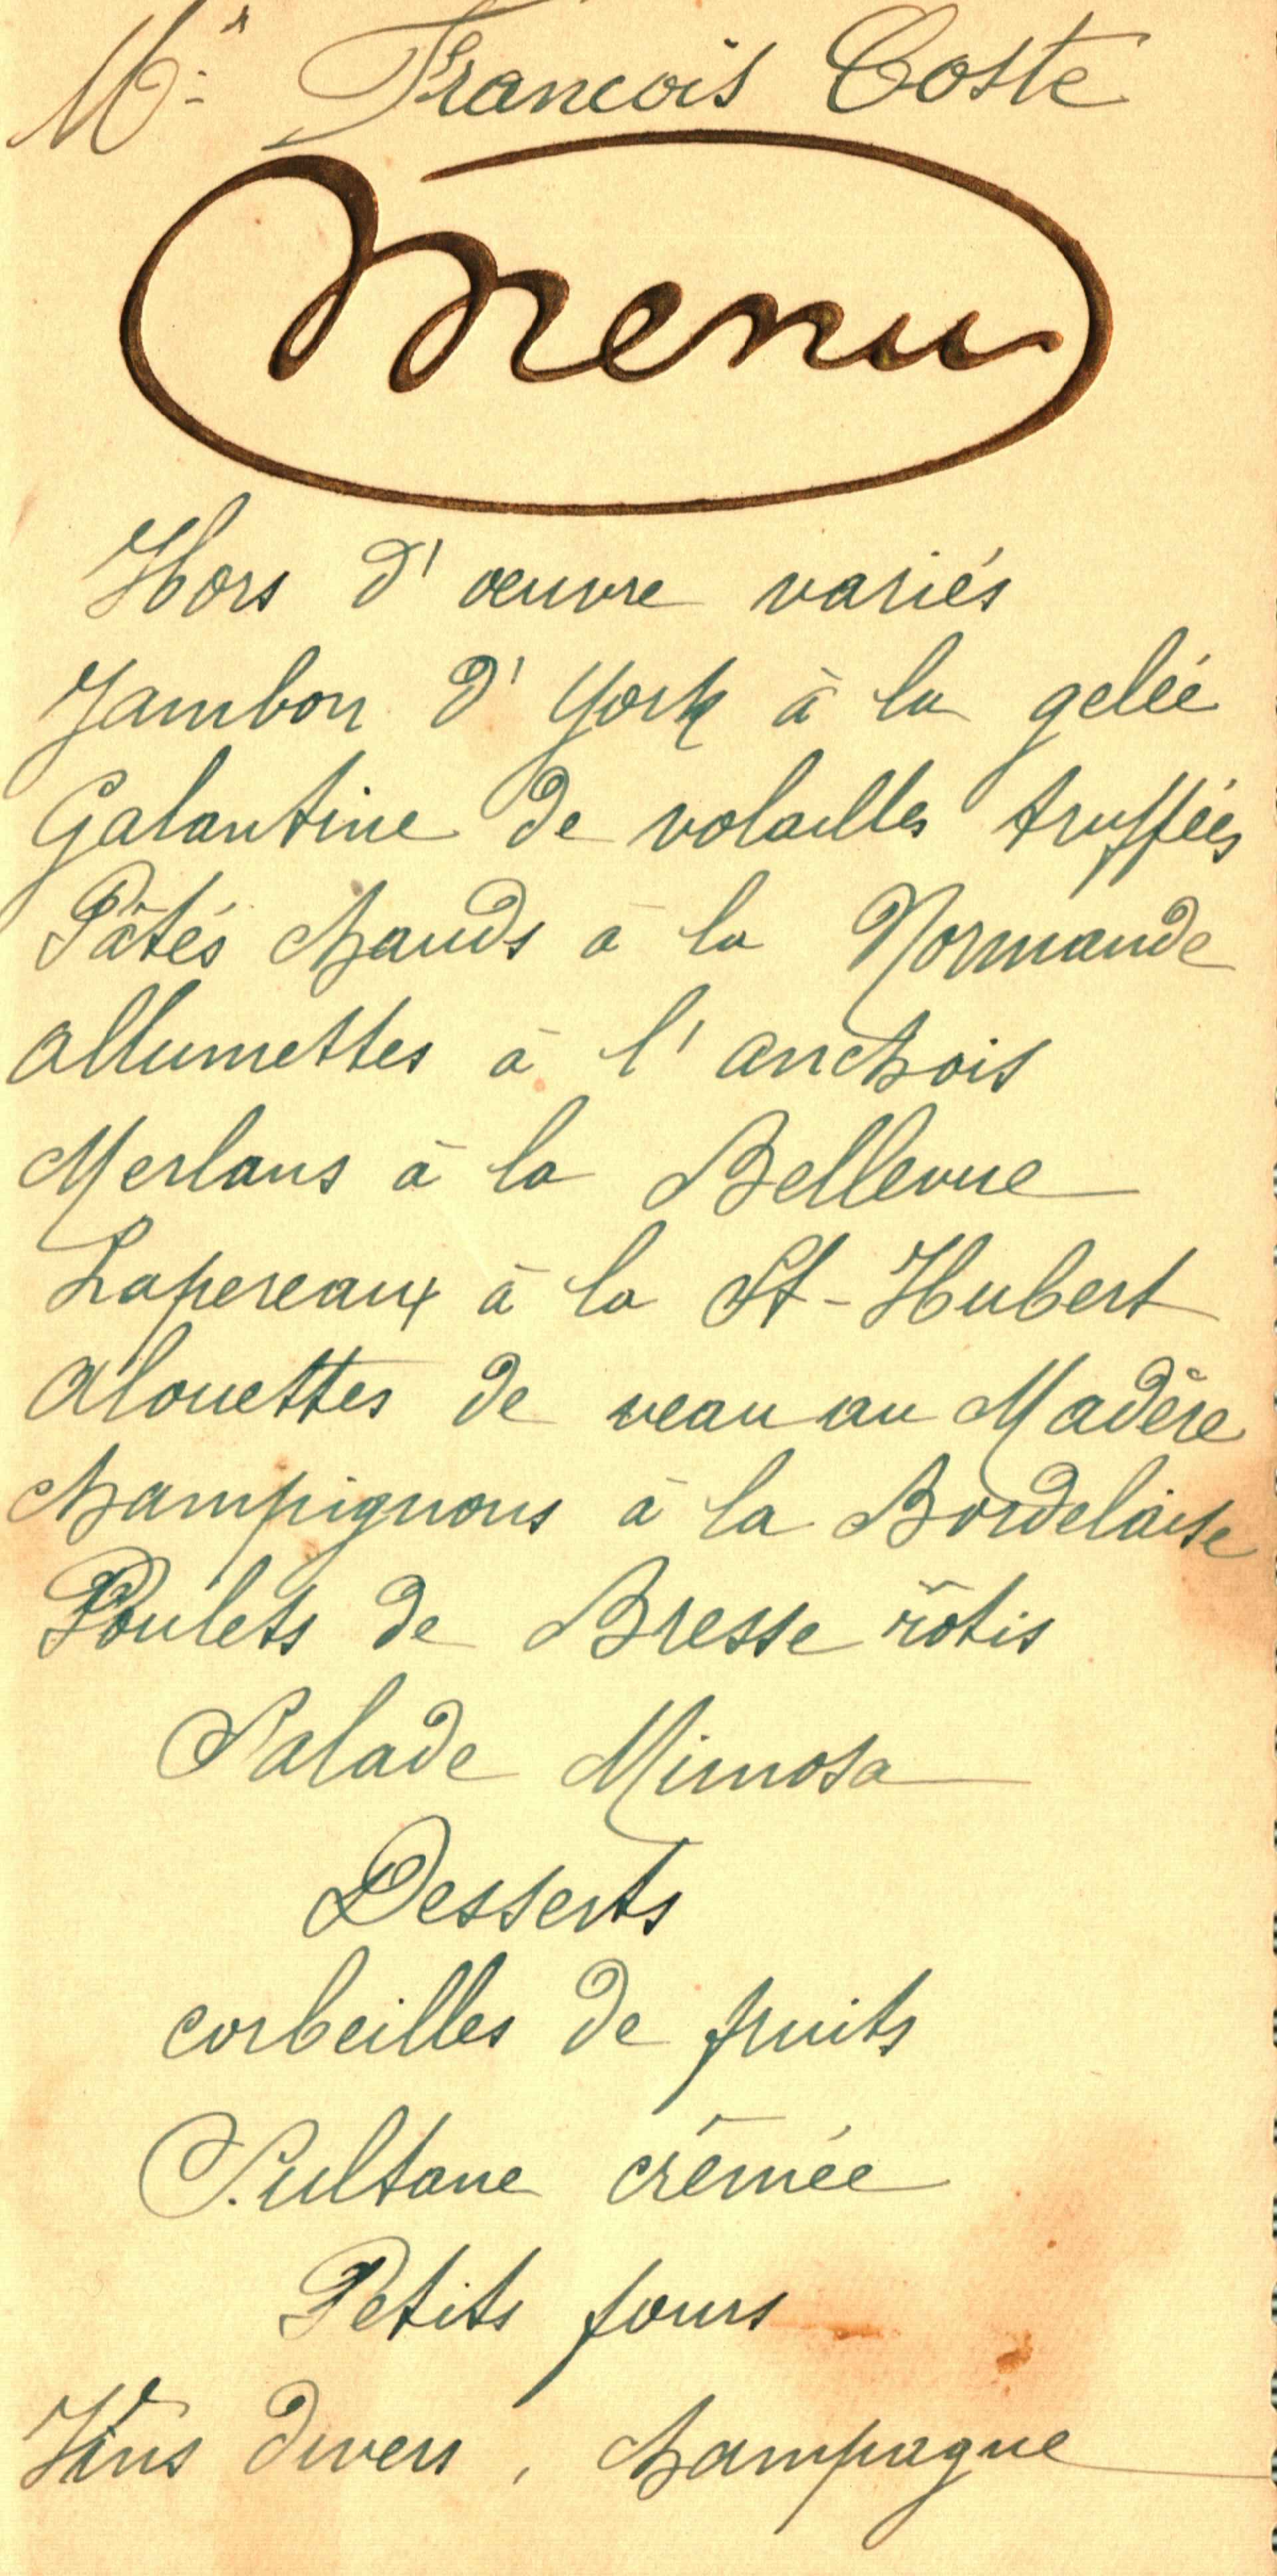 Mr. Francois Coste
Menu
Hors d'œuvre variés
Jambon d'York à la gelée
Galantine de volailles truffées
Pâtés chauds à la Normande
Allumettes à l'anchois
Merlans à la Bellevue
Lapereaux à la St-Hubert
Alouettes de veau au Madère
Champignons à la Bordelaise
Poulets de Bresse rôtis
Salade Mimosa
Desserts
corbeilles de fruits
Sultane crêmée
Petits fours
Vins divers, champagne